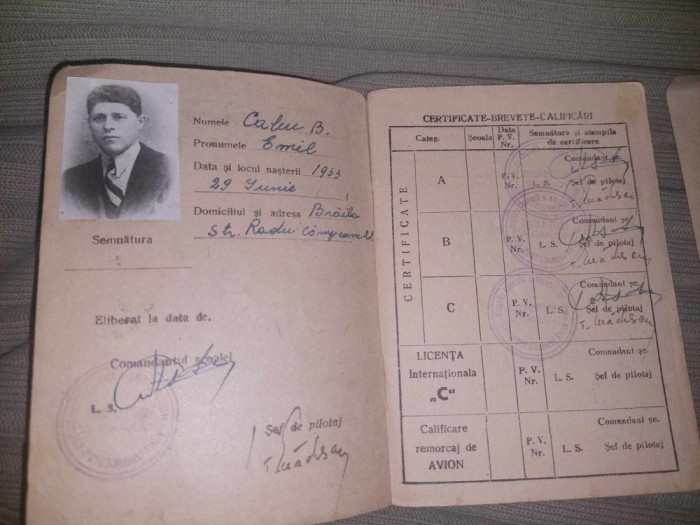 Numele Caleu B.
Pronumele Emil
Data și locul nașterii 1933
29 Iunie
Domiciliul și adresa Brăila
Str. Radu
Semnătura
Eliberat la data de.
Comandantul școalei
L. S.
Șef de pilotaj
CERTIFICATE-BREVETE-CALIFICĂRI
Categ. Școala Data P. V. Nr. Semnătura și stampila de certificare
CERTIFICATE
A P. V. Nr. L. S. Comandant șc. Șef de pilotaj
B P. V. Nr. L. S. Comandant șc. Șef de pilotaj
C P. V. Nr. L. S. Comandant șc. Șef de pilotaj
LICENȚA Internațională „C" P. V. Nr. L. S. Comandant șc. Șef de pilotaj
Calificare remorcaj de AVION P. V. Nr. L. S. Comandant șc. Șef de pilotaj